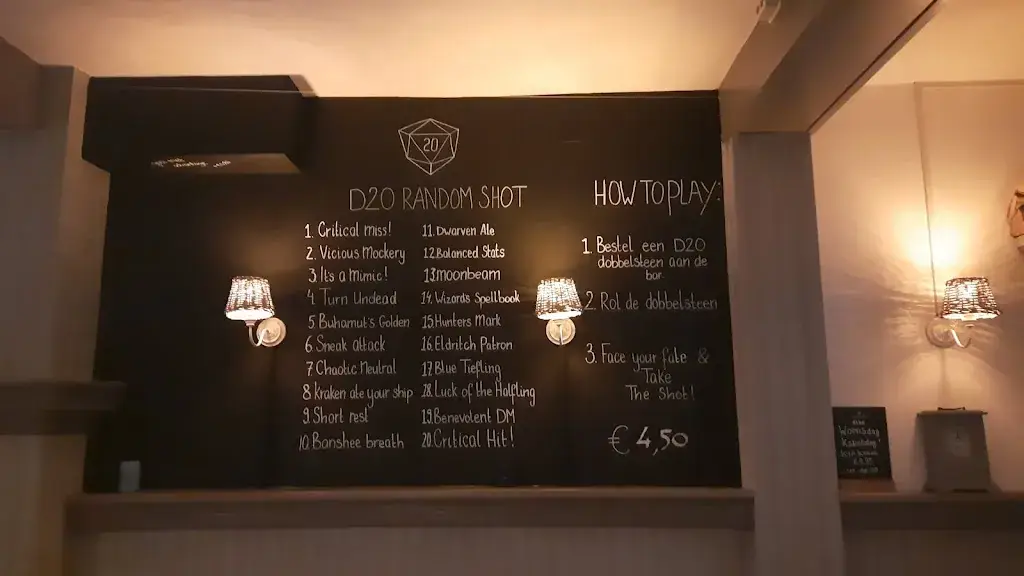 20
D20 RANDOM SHOT
1. Critical miss!
2. Vicious Mockery
3. It's a Mimic!
4 Turn Undead
5 Buhamut's Golden
6 Sneak attack
7 Chaotic Neutral
8 Kraken ate your ship
9 Short rest
10. Banshee breath
11. Dwarven Ale
12. Balanced Stats
13. moonbeam
14. Wizards Spellbook
15. Hunters Mark
16. Eldritch Patron
17. Blue Tiefling
18. Luck of the Halfling
19. Benevolent DM
20. Critical Hit!
HOW TO PLAY:
1. Bestel een D20
dobbelsteen aan de
bar.
2. Rol de dobbelsteen
3. Face your fate &
Take
The Shot!
€ 4,50